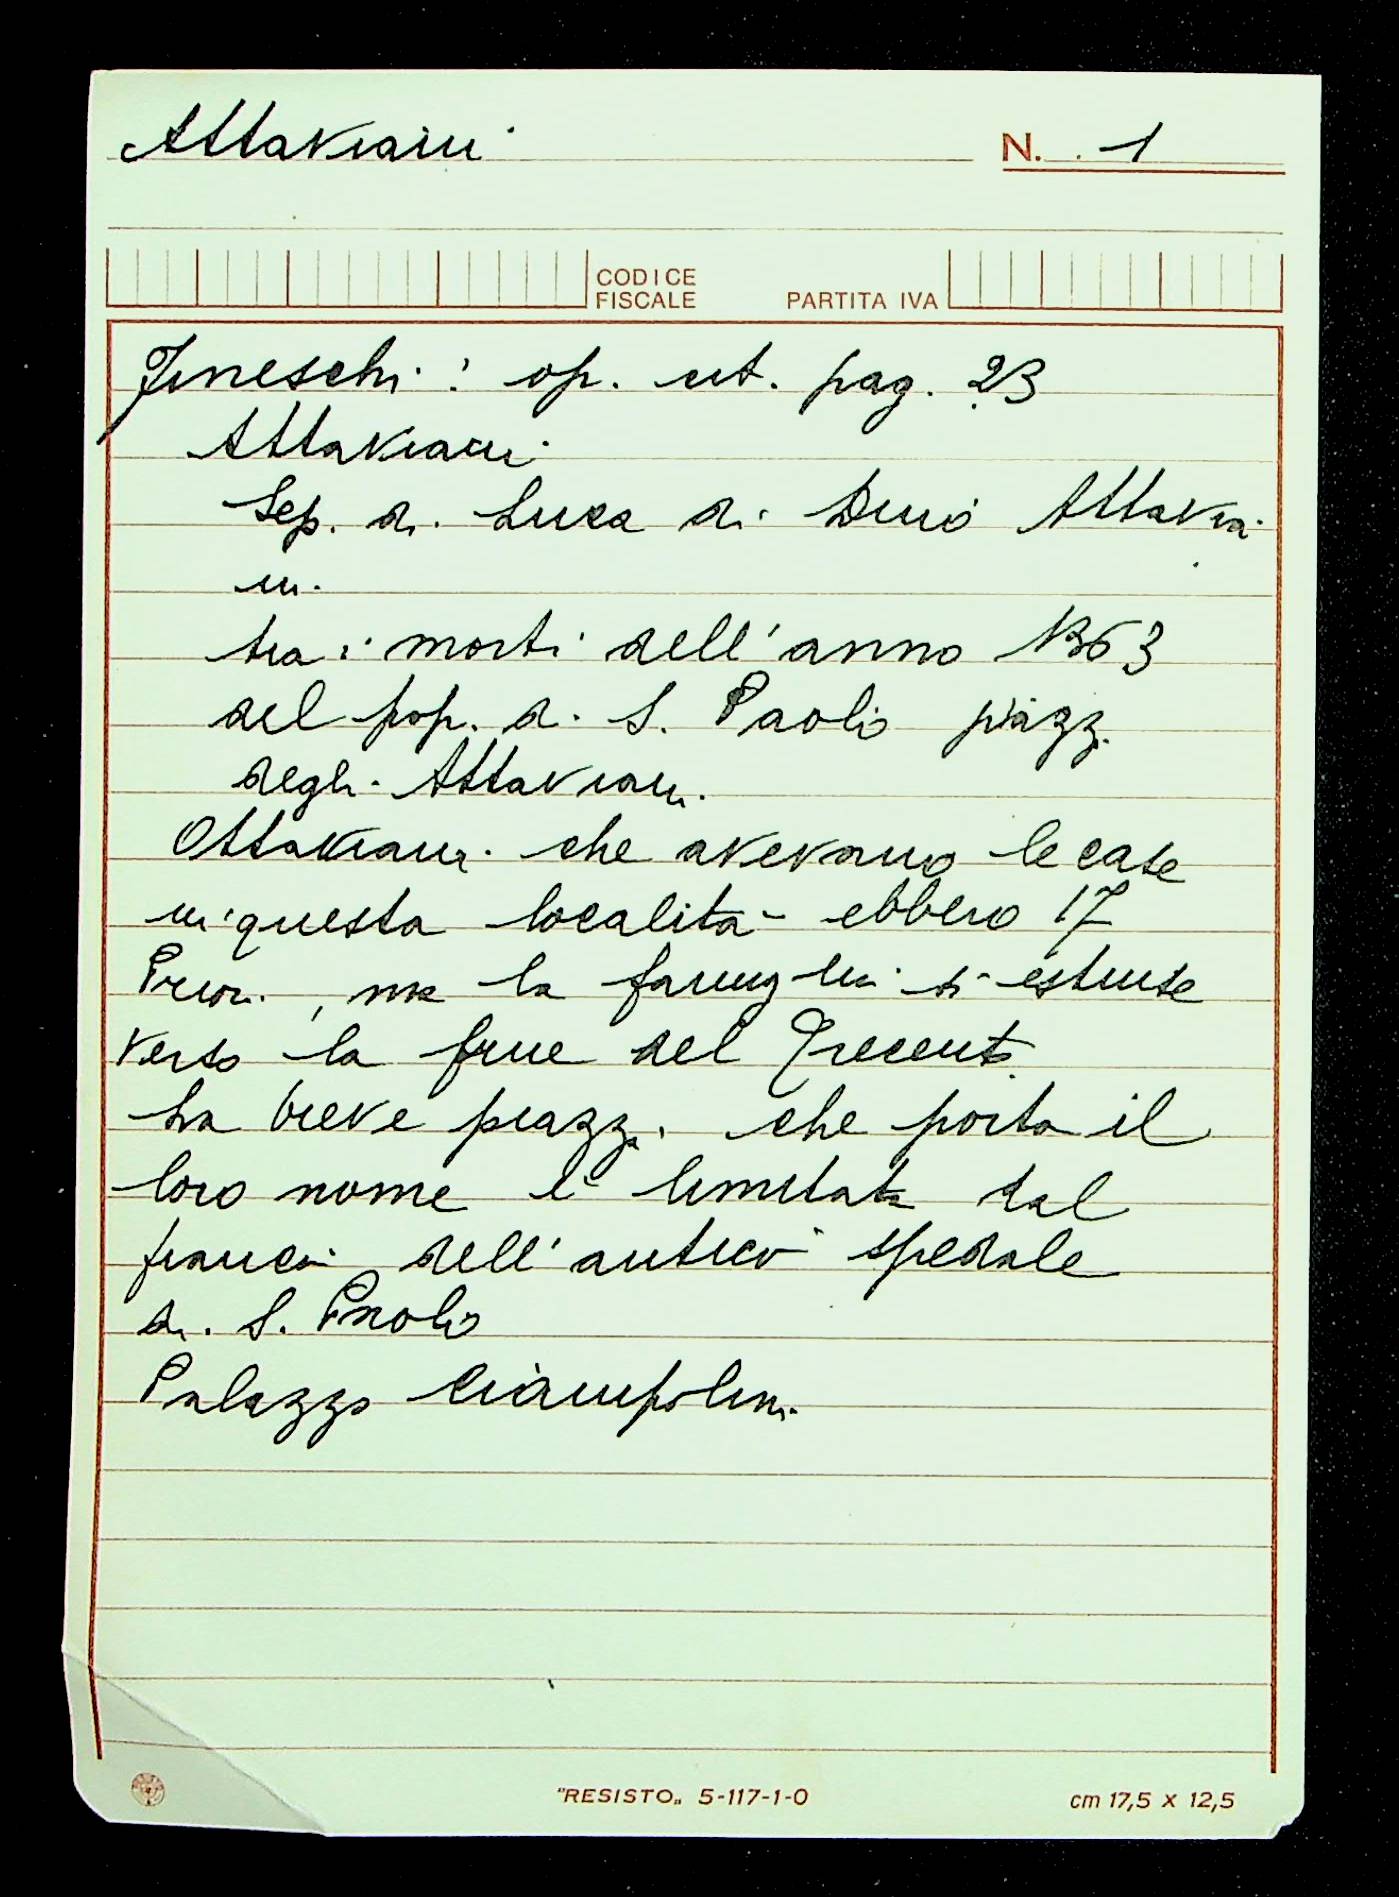 Attaviani
N. 1
CODICE
FISCALE
PARTITA IVA
Fineschi: op. cit. pag. 23
Attaviani
Sep. di Luca di Dino Attavia-
ni.
tra i morti dell'anno 1363
del pop. di S. Paolo piazz.
degli Attaviani.
Ottaviani che avevano le case
in questa località ebbero 17
Priori, ma la famiglia si estinse
verso la fine del Trecento.
La breve piazza che porta il
loro nome è limitata dal
fianco dell'antico spedale
di S. Paolo
Palazzo Ciampolini
"RESISTO„ 5-117-1-0
cm 17,5 x 12,5